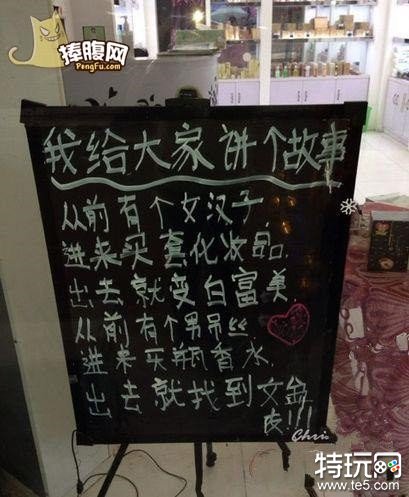 捧腹网
PengFu.com
我给大家饼个故事
从前有个女汉子
进来买套化妆品.
出去就变白富美.
从前有个男吊丝
进来买瓶香水.
出去就找到女盆
友!!!
Chris
特玩网
www.te5.com